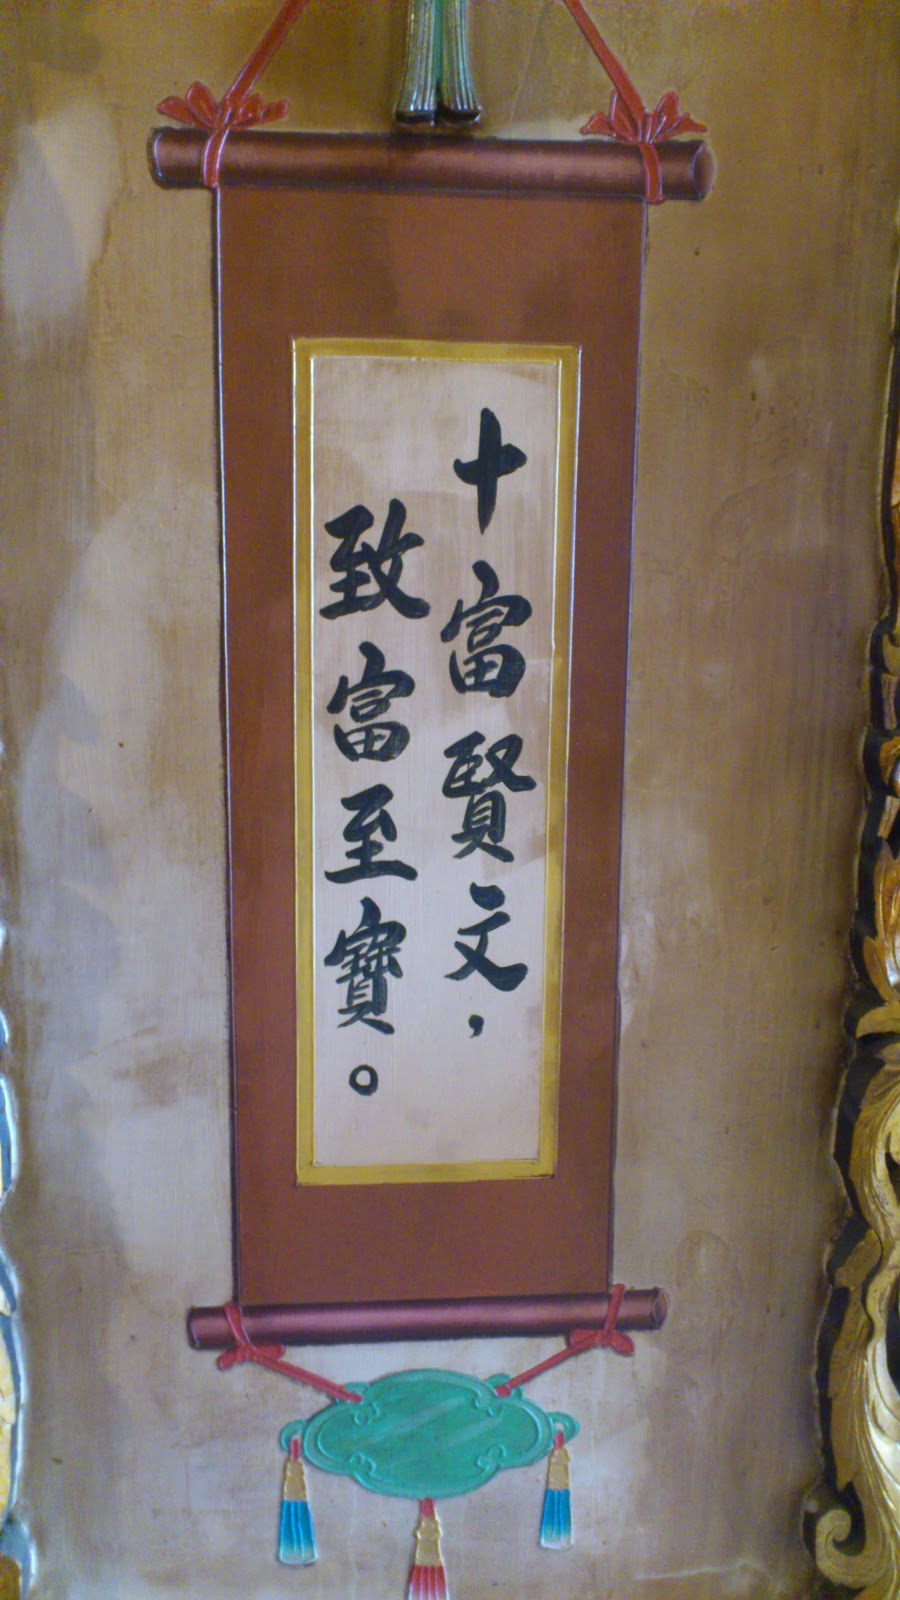 十富賢文，
致富至寶。